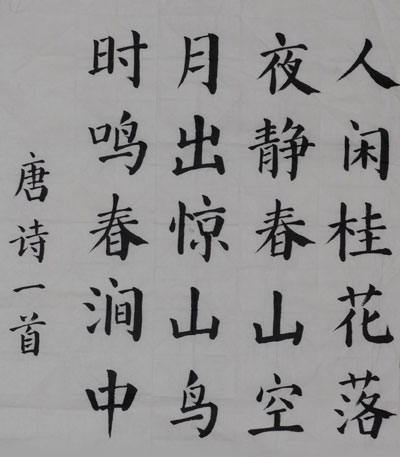 人闲桂花落
夜静春山空
月出惊山鸟
时鸣春涧中
唐诗一首